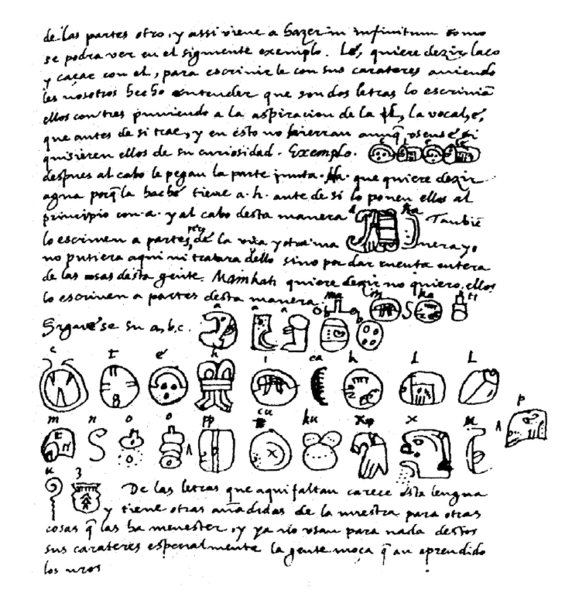 de las partes otro, y assi viene a hazer in infinitum como
se podra ver en el siguiente exemplo. Lé, quiere dezir laço
y caçar con el, para escrivirle con sus carateres aviendo
les nosotros hecho entender que son dos letras lo escrivian
ellos con tres puniendo a la aspiracion de la l, la vocal, é,
que antes de si trae, y en esto no hierran aunq usense si
quisieren ellos de su curiosidad. Exemplo.
despues al cabo le pegan la parte junta. Ha. que quiere dezir
agua porq la hache tiene a. h. ante de si lo ponen ellos al
principio con a. y al cabo desta manera Tambiē
lo escriven a partes, de la una y otra ma nera yo
no pusiera aqui ni tratara dello sino por dar cuenta entera
de las cosas desta gente. Mainkati quiere dezir no quiero, ellos
lo escriven a partes desta manera: ma i n ka ti
Siguese su a, b, c. a a a b b
c t é h i ca k l L
m n o o pp cu ku x x u p
u z De las letras que aqui faltan carece esta lengua
y tiene otras añadidas de la nuestra para otras
cosas q las ha menester, y ya no usan para nada destos
sus carateres especialmente la gente moça q an aprendido
los nros